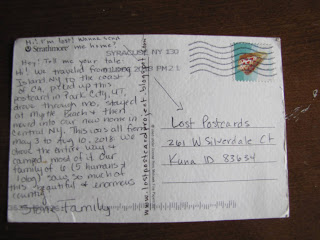 Hi! I'm lost! Wanna send
me home?
Strathmore
SYRACUSE NY 130
2018 PM 2 L
Hey! Tell me your tale
Hi! We traveled from Long
Island NY to the coast
of CA, picked up this
postcard in Park City, UT,
drove through mo, stayed
at Myrtle Beach & then
moved into our new home in
Central NY. This was all from
May 3 to Aug 10, 2018. We
drove the entire way &
camped most of it. Our
family of 6 (5 humans &
1 dog) saw so much of
this beautiful & enormous
country.
Family
www.lostpostcardproject.blogspot.com
Lost Postcards
261 W Silverdale Ct
Kuna ID 83634